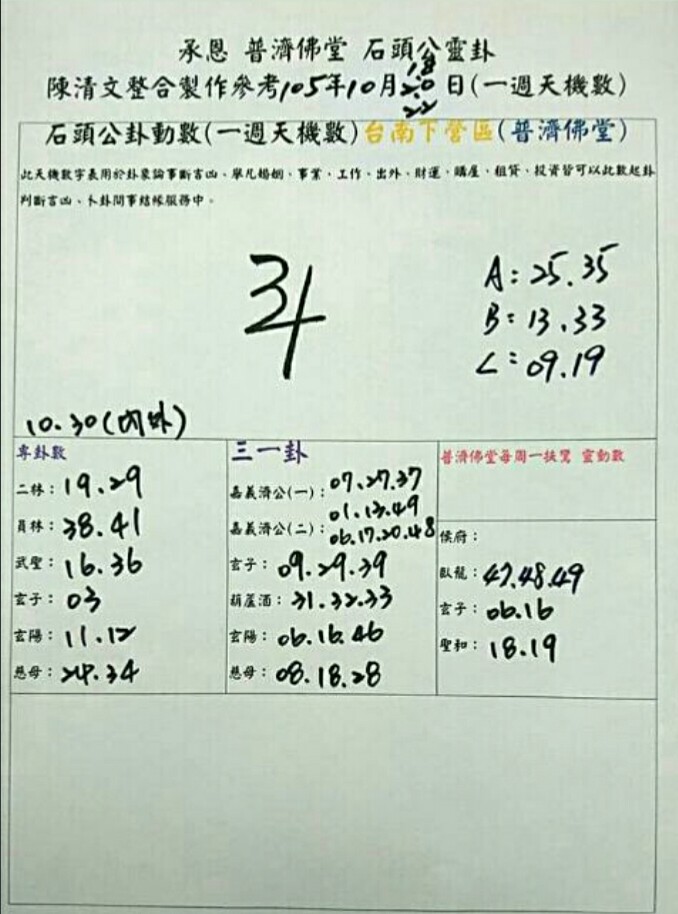 承恩 普濟佛堂 石頭公靈卦
18
陳清文整合製作參考105年10月20日(一週天機數)
22
石頭公卦動數(一週天機數)台南下營區(普濟佛堂)
此天機數字表用於卦象論事斷吉凶、舉凡婚姻、事業、工作、出外、財運、購屋、租貸、投資皆可以此數起卦
判斷吉凶、卜卦問事結緣服務中。
A:25.35
B:13.33
C:09.19
10.30(內外)
專卦數
二林:19.29
員林:38.41
武聖:16.36
玄子:03
玄陽:11.12
慈母:24.34
三一卦
嘉義濟公(一):07.27.37
01.13.49
嘉義濟公(二):06.17.20.48
玄子:09.29.39
葫蘆酒:31.32.33
玄陽:06.16.46
慈母:08.18.28
普濟佛堂每周一扶鸞 靈動數
侯府:
臥龍:47.48.49
玄子:06.16
聖和:18.19